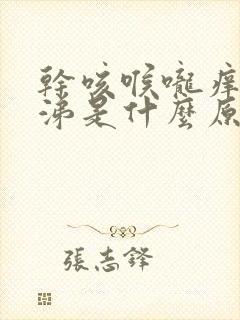 幹咳喉嚨癢
涕是什麼原
張志鋒